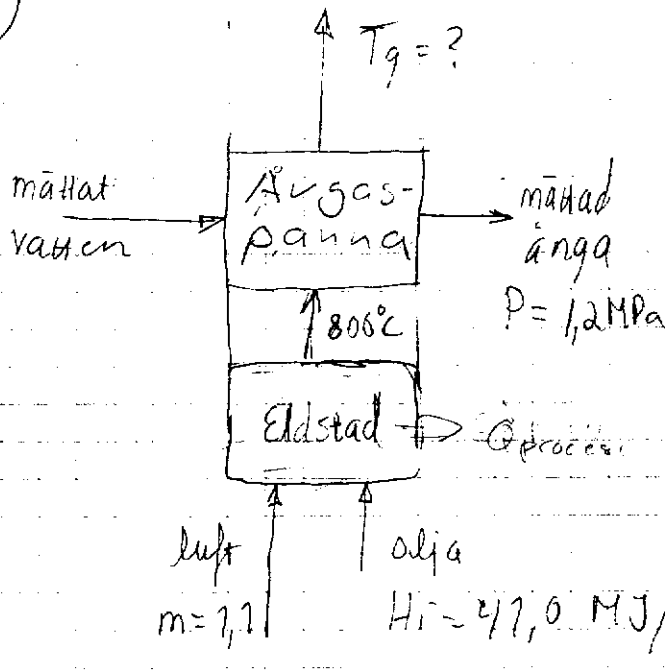 Tg = ?
mättat
vatten
Avgas-
panna
mättad
ånga
P = 1,2 MPa
800°C
Eldstad
Qprocess
luft
m = 1,1
olja
Hi = 41,0 MJ/